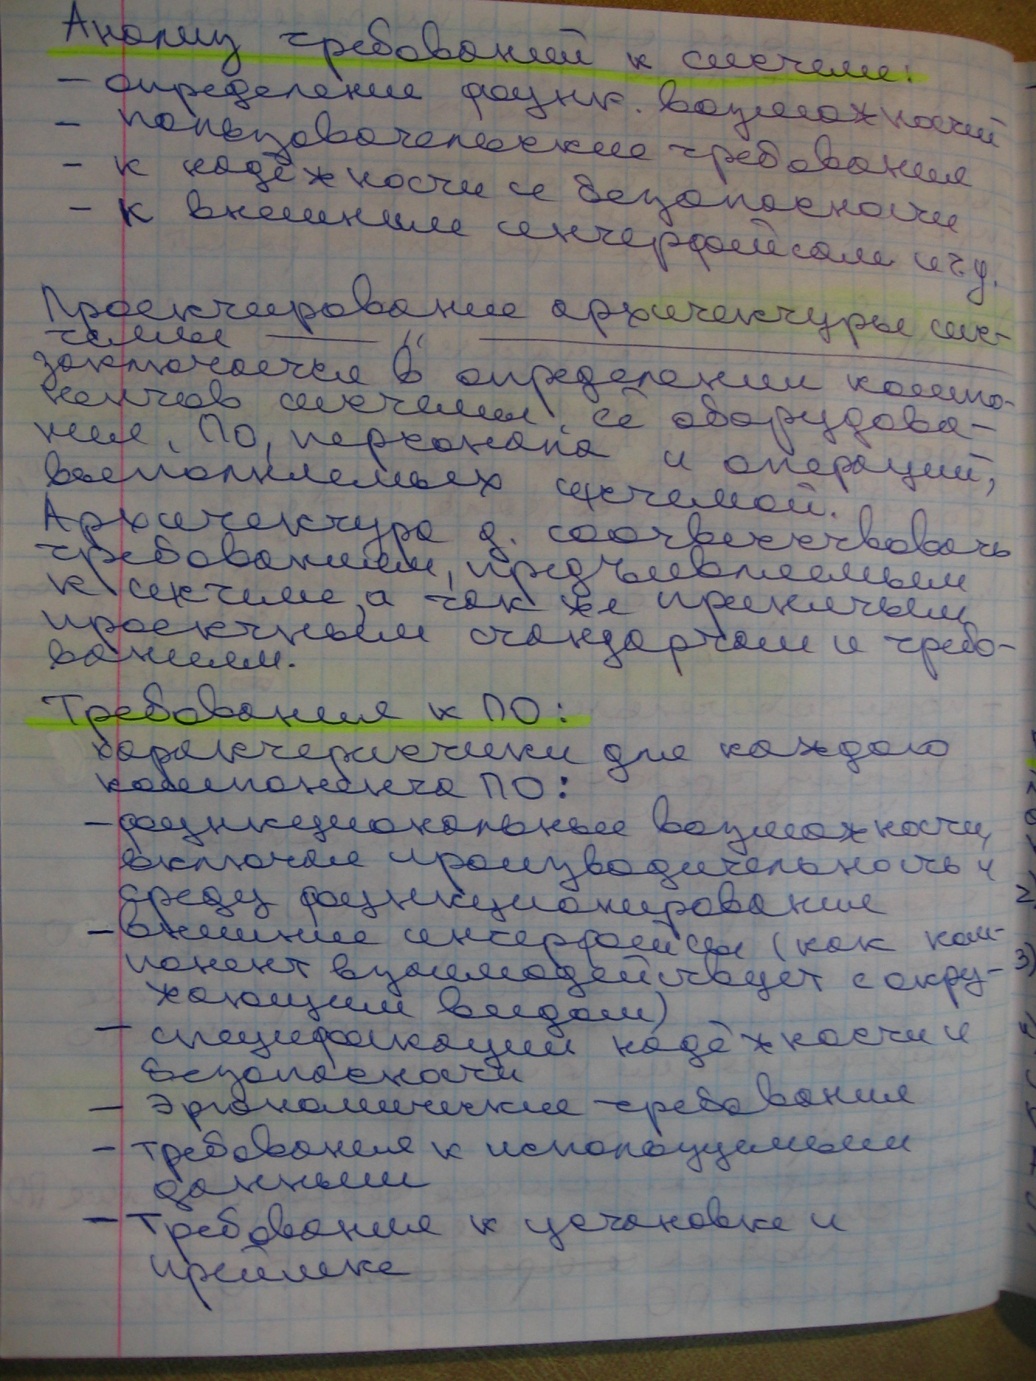 Анализ требований к системе:
- определение функ. возможностей
- пользовательские требования
- к надёжности и безопасности
- к внешним интерфейсам и т д.
Проектирование архитектуры сис-
темы — " —
заключается в определении компо-
нентов системы, её оборудова-
ния, ПО, персонала и операций,
выполняемых системой.
Архитектура д. соответствовать
требованиям, предъявляемым
к системе, а так же принятым
проектным стандартам и требо-
ваниям.
Требования к ПО:
характеристики для каждого
компонента ПО:
- функциональные возможности,
включая производительность и
среду функционирования
- внешние интерфейсы (как ком-
понент взаимодействует с окру-
жающим видом)
- спецификации надёжности и
безопасности
- Эргономические требования
- требования к используемым
данным
- Требования к установке и
приёмке